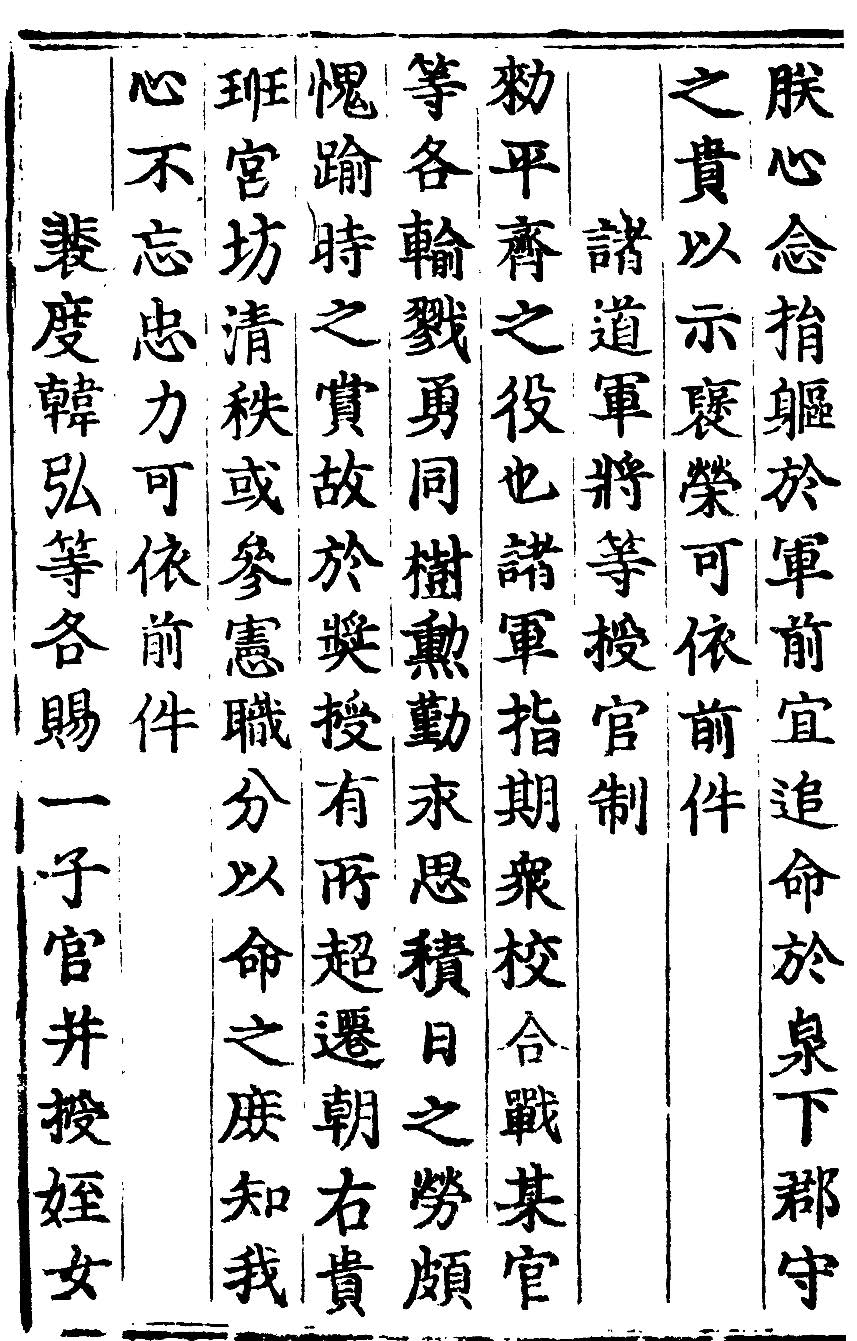 朕心念捐軀於軍前宜追命於泉下郡守
之貴以示襃榮可依前件
諸道軍將等授官制
勑平齊之役也諸軍指期衆校合戰某官
等各輸戮勇同樹勲勤永思積日之勞頗
愧踰時之賞故於奬授有所超遷朝右貴
班宮坊清秩或參憲職分以命之庻知我
心不忘忠力可依前件
裴度韓弘等各賜一子官并授姪女